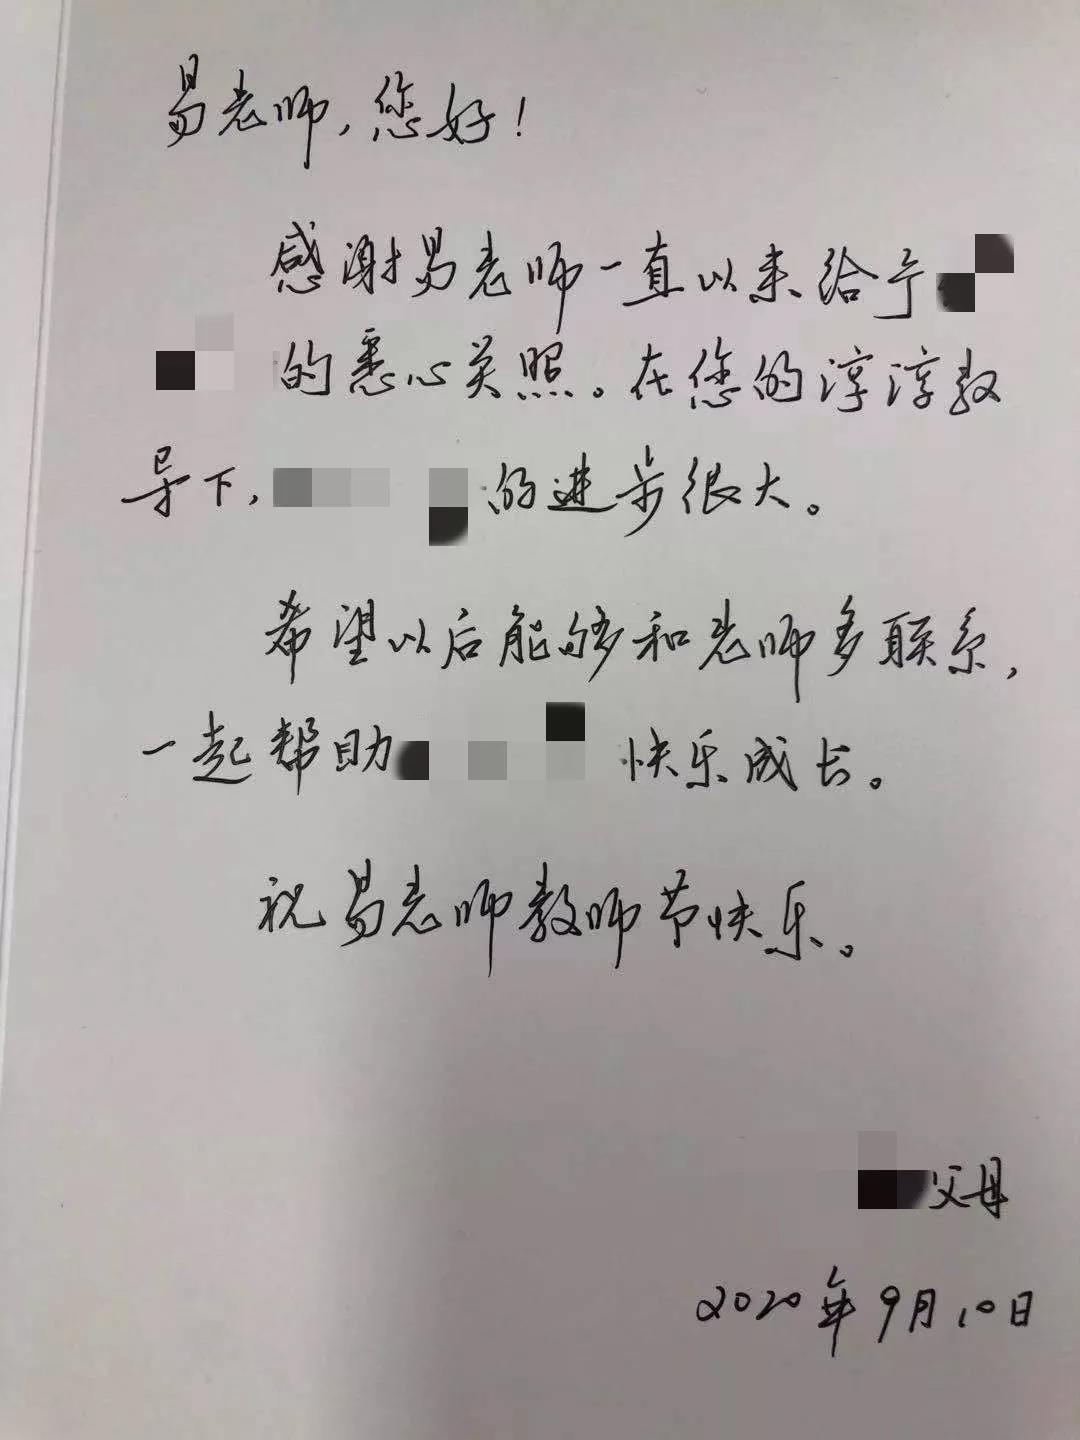 易老师，您好！
感谢易老师一直以来给予
的悉心关照。在您的淳淳教
导下，的进步很大。
希望以后能够和老师多联系，
一起帮助快乐成长。
祝易老师教师节快乐。
父母
2020年9月10日